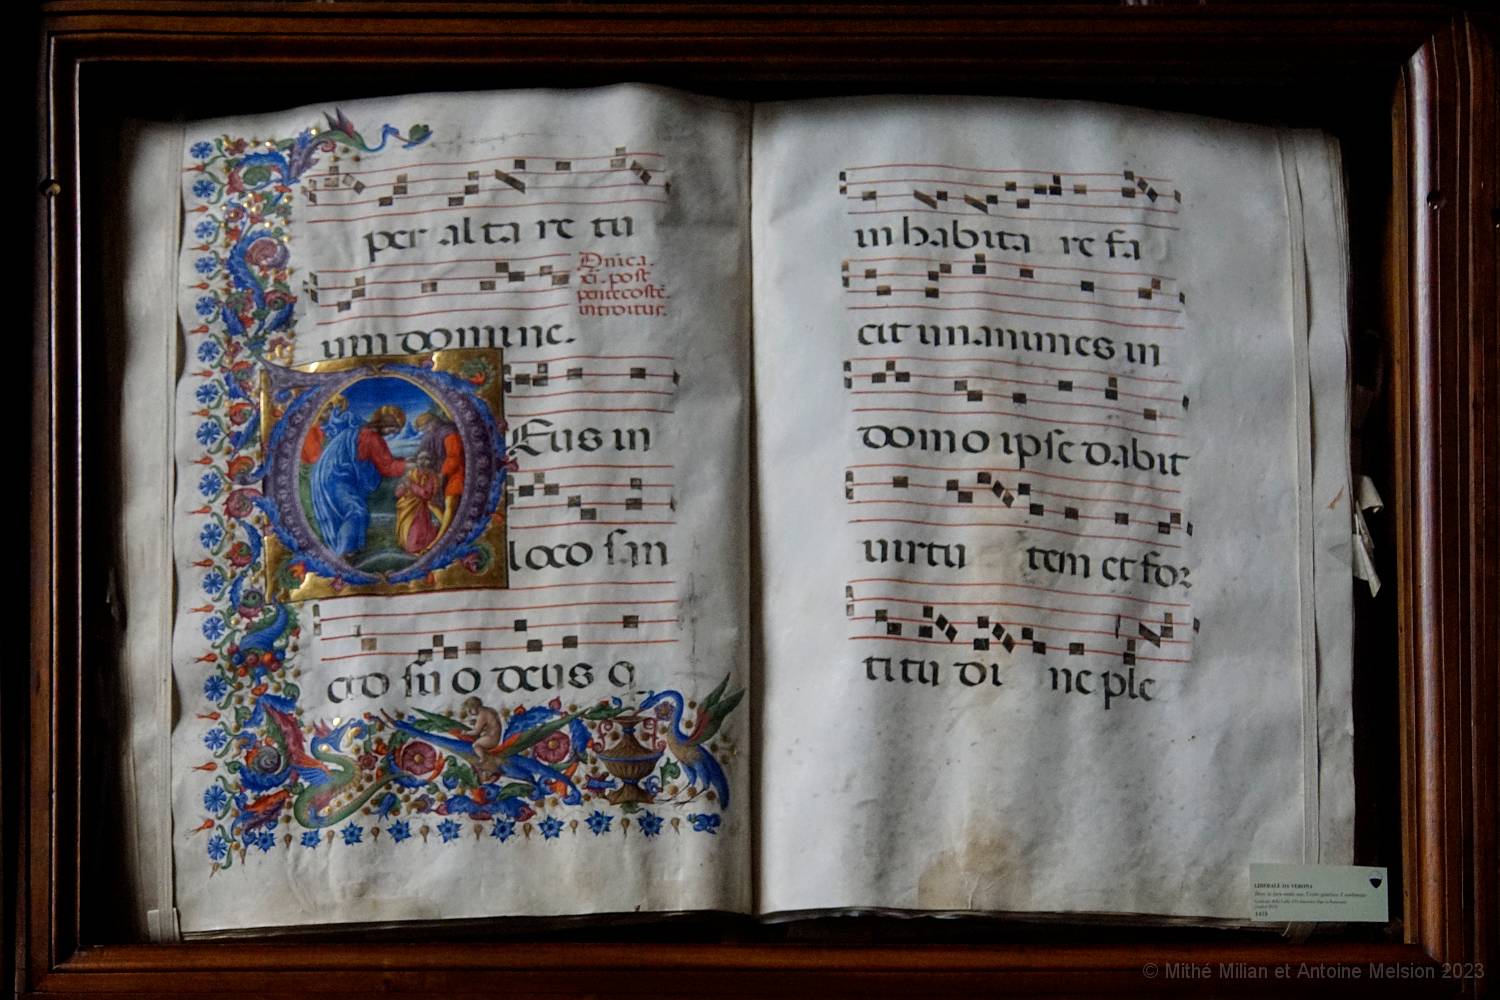 per alta re tu
um domine.
Dn̄ica.
xi. post
pentecostē.
introitus.
Eus in
loco san
cto su o deus q
in habita re fa
cit unanimes in
domo ipse dabit
uirtu tem et for
titu di ne ple
LIBERALE DA VERONA
© Mithé Milian et Antoine Melsion 2023